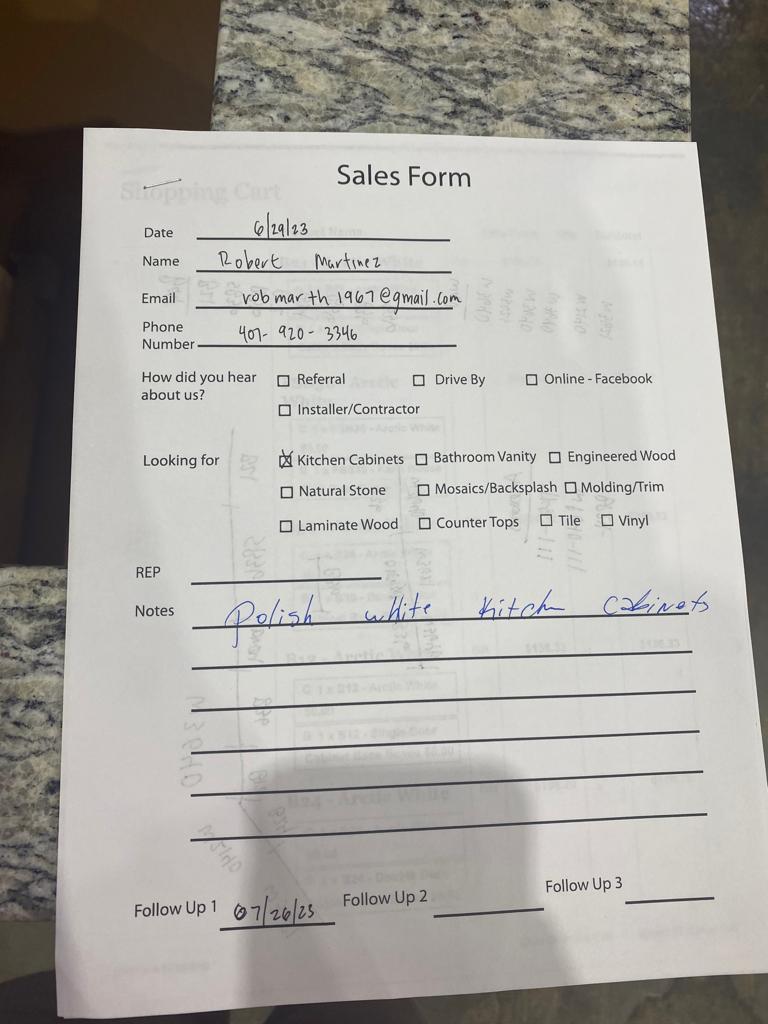 Sales Form
Date 6/29/23
Name Robert Martinez
Email robmarth1967@gmail.com
Phone Number 407-920-3346
How did you hear about us? ☐ Referral ☐ Drive By ☐ Online - Facebook
☐ Installer/Contractor
Looking for ☒ Kitchen Cabinets ☐ Bathroom Vanity ☐ Engineered Wood
☐ Natural Stone ☐ Mosaics/Backsplash ☐ Molding/Trim
☐ Laminate Wood ☐ Counter Tops ☐ Tile ☐ Vinyl
REP
Notes Polish white Kitch Cabinets
Follow Up 1 07/26/23 Follow Up 2 Follow Up 3